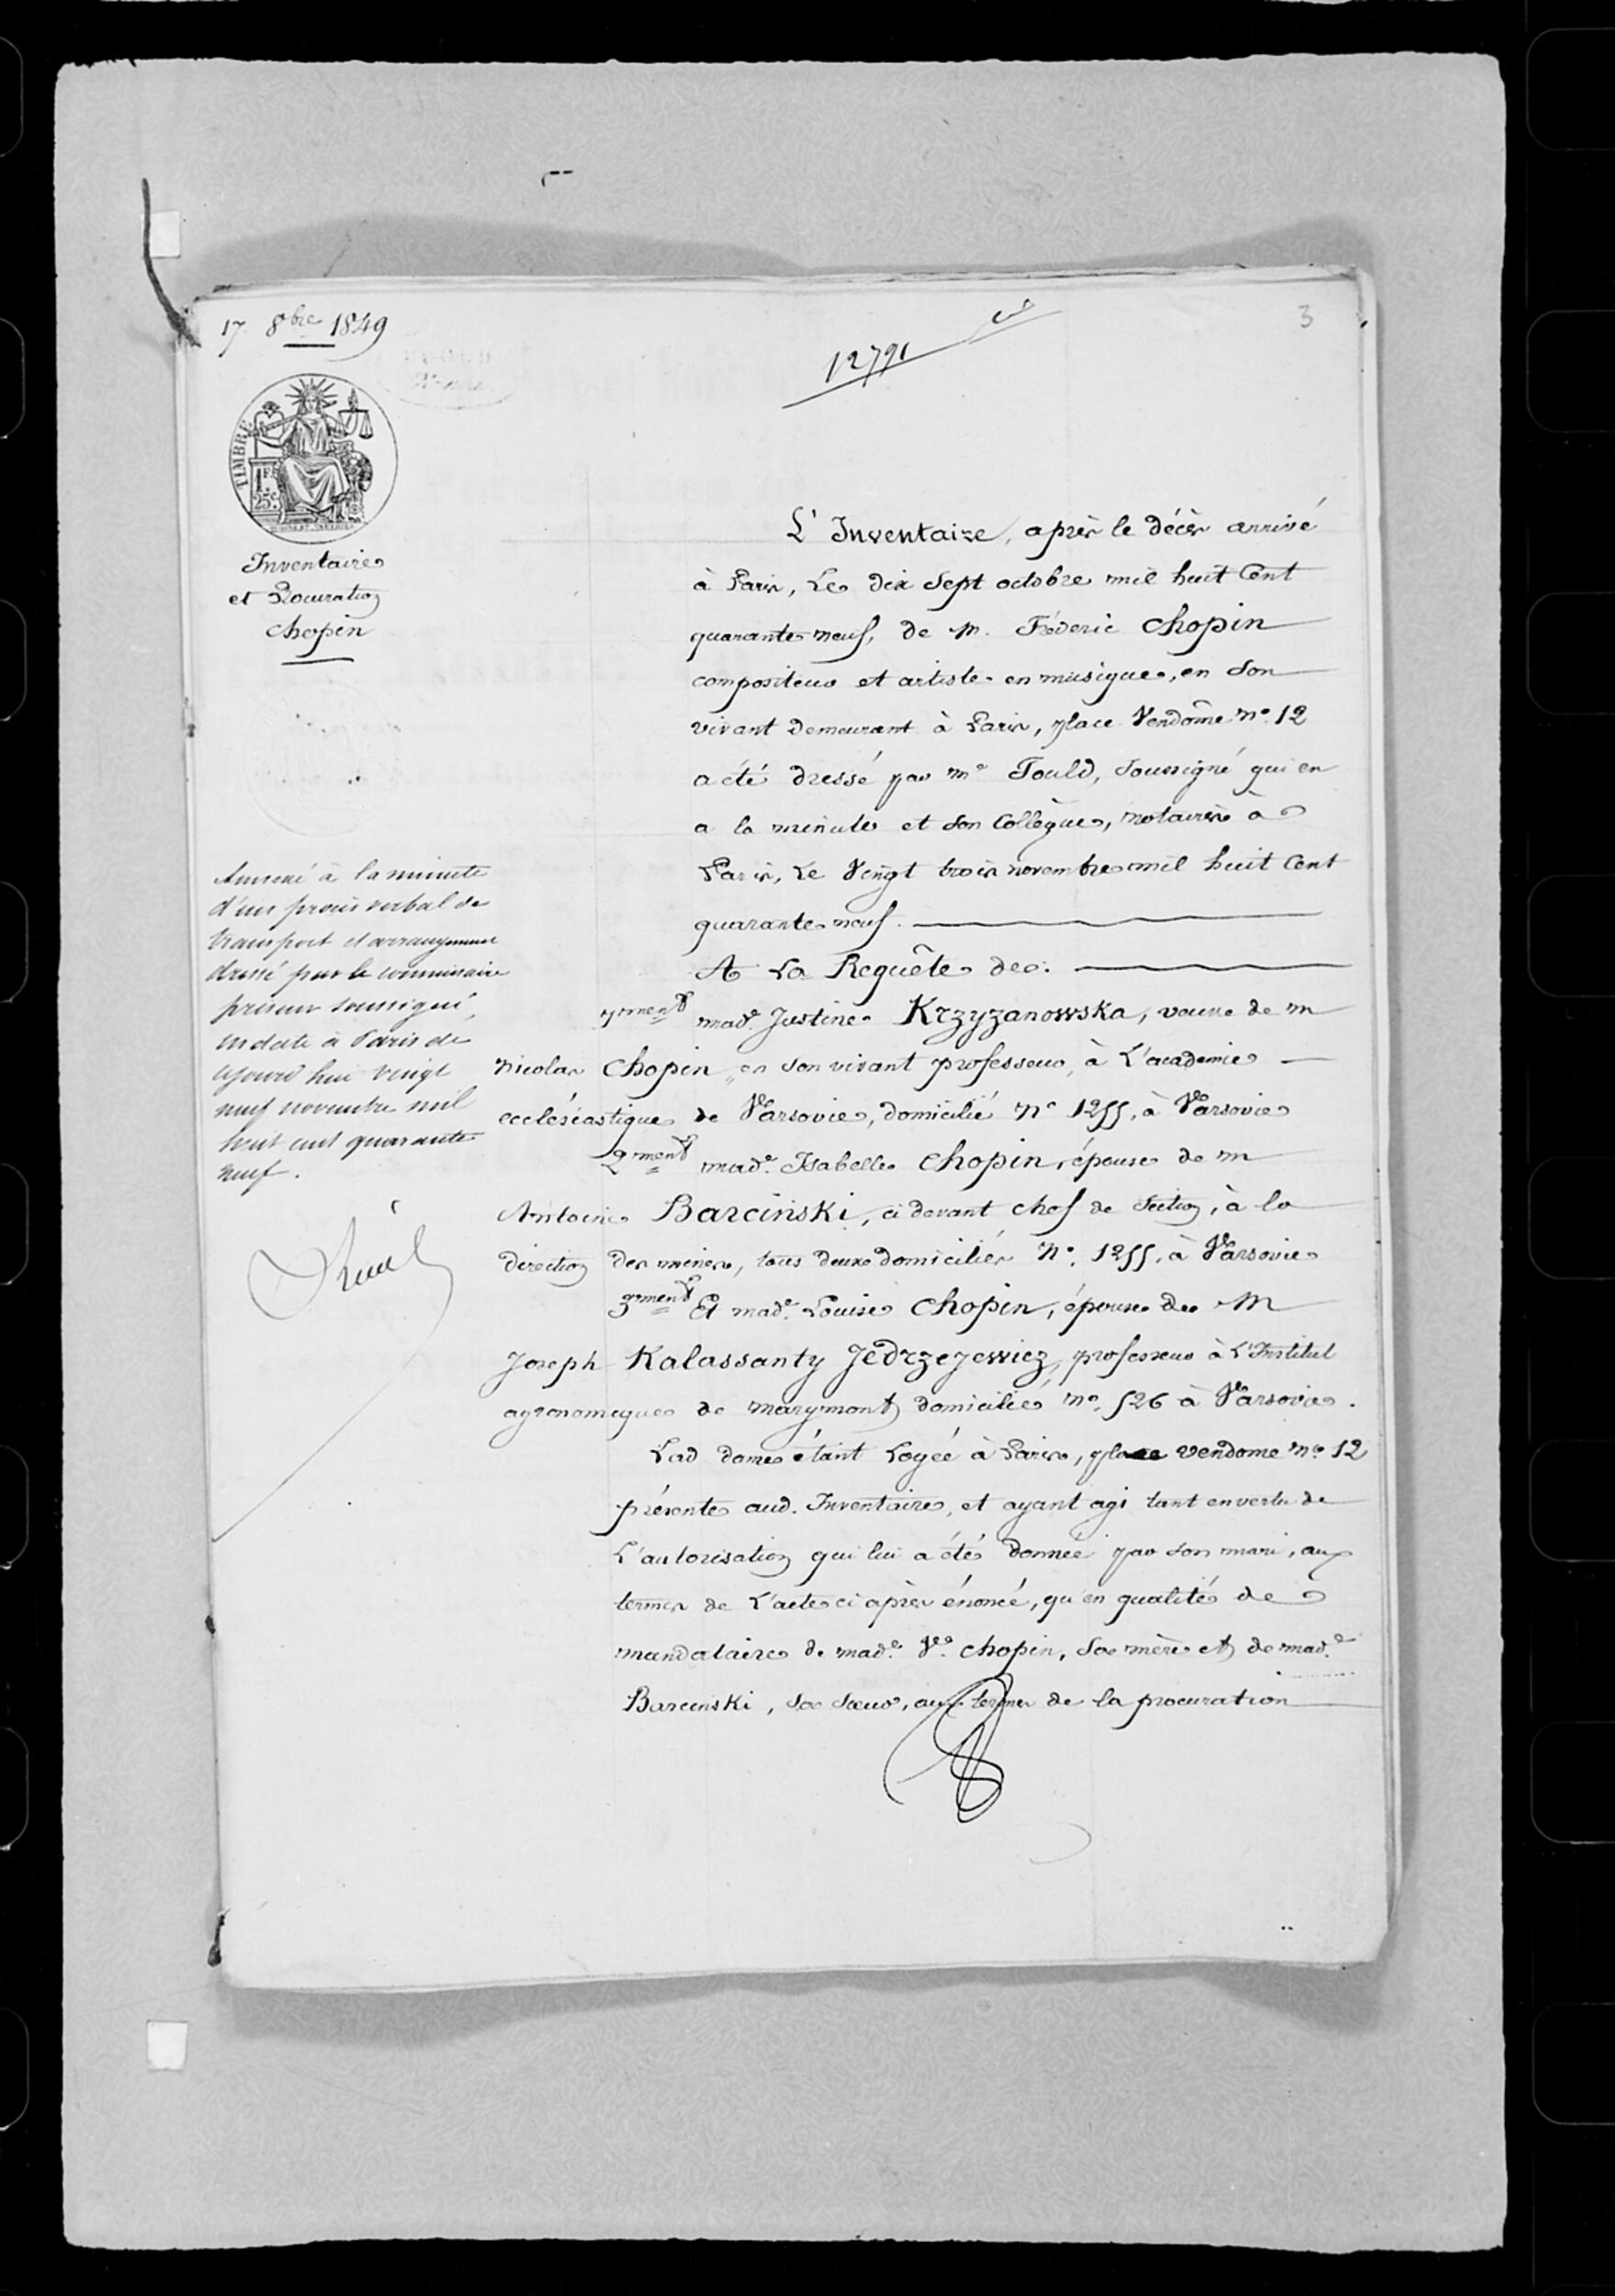 17 8bre 1849
12791
3
TIMBRE
1 F.
25 c.
Inventaire
et Procuration
Chopin
L'Inventaire, après le décès arrivé
à Paris, Le dix Sept octobre mil huit Cent
quarante neuf, de M. Fréderic Chopin
compositeur et artiste en musique, en Son
vivant demeurant à Paris, place Vendôme No. 12
a été dressé par Me Fould, Soussigné qui en
a la minute et Son Collègue, notaires à
Paris, Le Vingt trois novembre mil huit Cent
quarante neuf.
A La Requête de:
1ment made. Justine Krzyzanowska, veuve de m
Nicolas Chopin, en Son vivant professeur, à L'academie
ecclésiastique de Varsovie, domicilié No 1255, à Varsovie
2ment made. Isabelle Chopin, épouse de m
Antoine Barcinski, ci devant chef de Section, à la
direction des mines, tous deux domiciliés No. 1255, à Varsovie
3ment Et made. Louise Chopin, épouse de M
Joseph Kalassanty Jedrzejewicz, professeur à L'Institut
agronomique de Marymont, domicilié, No. 526 à Varsovie.
Lad dame étant Logée à Paris, place Vendome No. 12
présente aud. Inventaire, et ayant agi tant en vertu de
L'autorisation qui lui a été donnée par Son mari, aux
termes de L'acte ci après énoncé, qu'en qualité de
mandataire de made. Ve. Chopin, Sa mère et de made.
Barcinski, Sa Sœur, aux termes de la procuration
Annexé à la minute
d'un procès verbal de
transport et arrangement
dressé par le commissaire
priseur soussigné,
en date à Paris de
ajourd'hui vingt
neuf novembre mil
huit cent quarante
neuf.